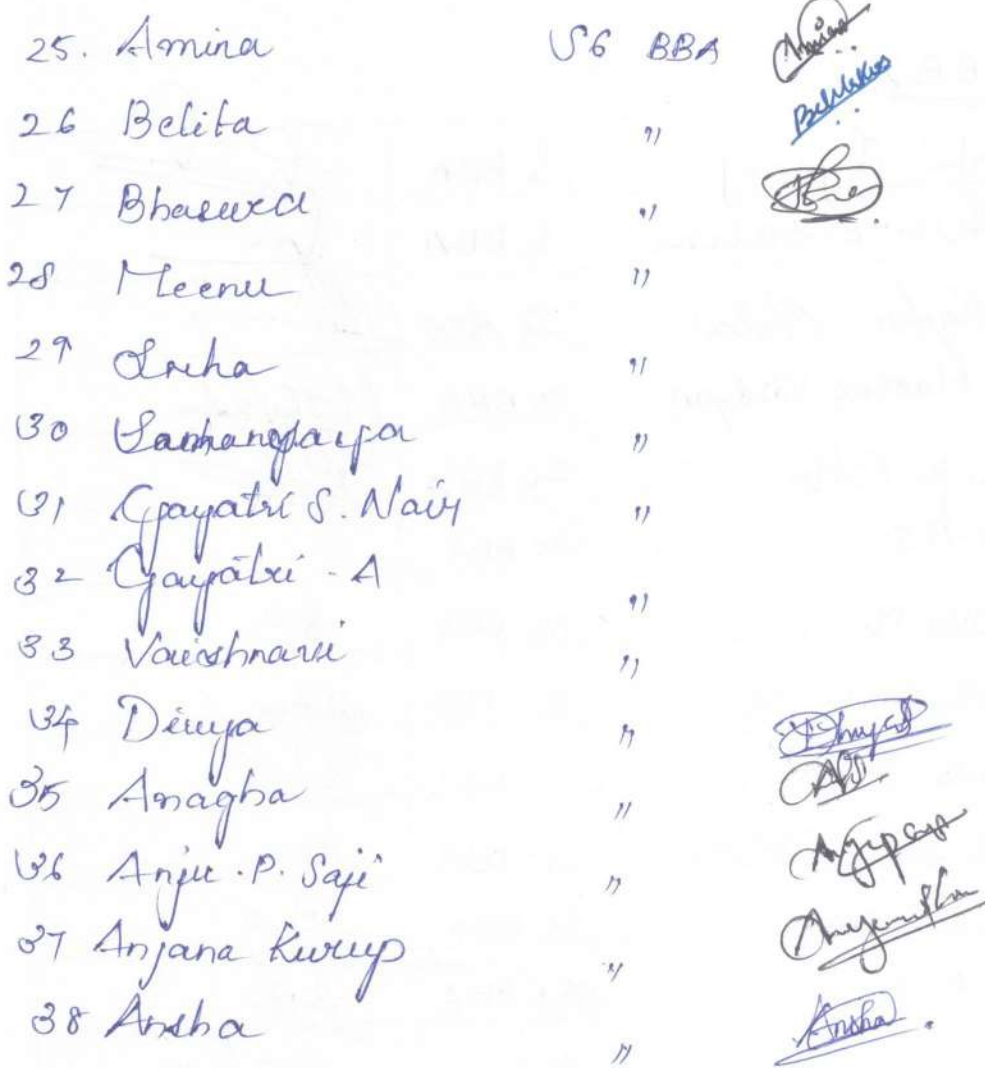 25. Amina S6 BBA
26 Belita "
27 Bhasura "
28 Meenu "
29 Sneha "
30 "
31 Gayatri S. Nair "
32 Gayatri - A "
33 Vaishnavi "
34 Divya " Dhivya
35 Anagha "
36 Anju . P. Saji " Anjupsaji
37 Anjana Kurup "
38 Ansha " Ansha